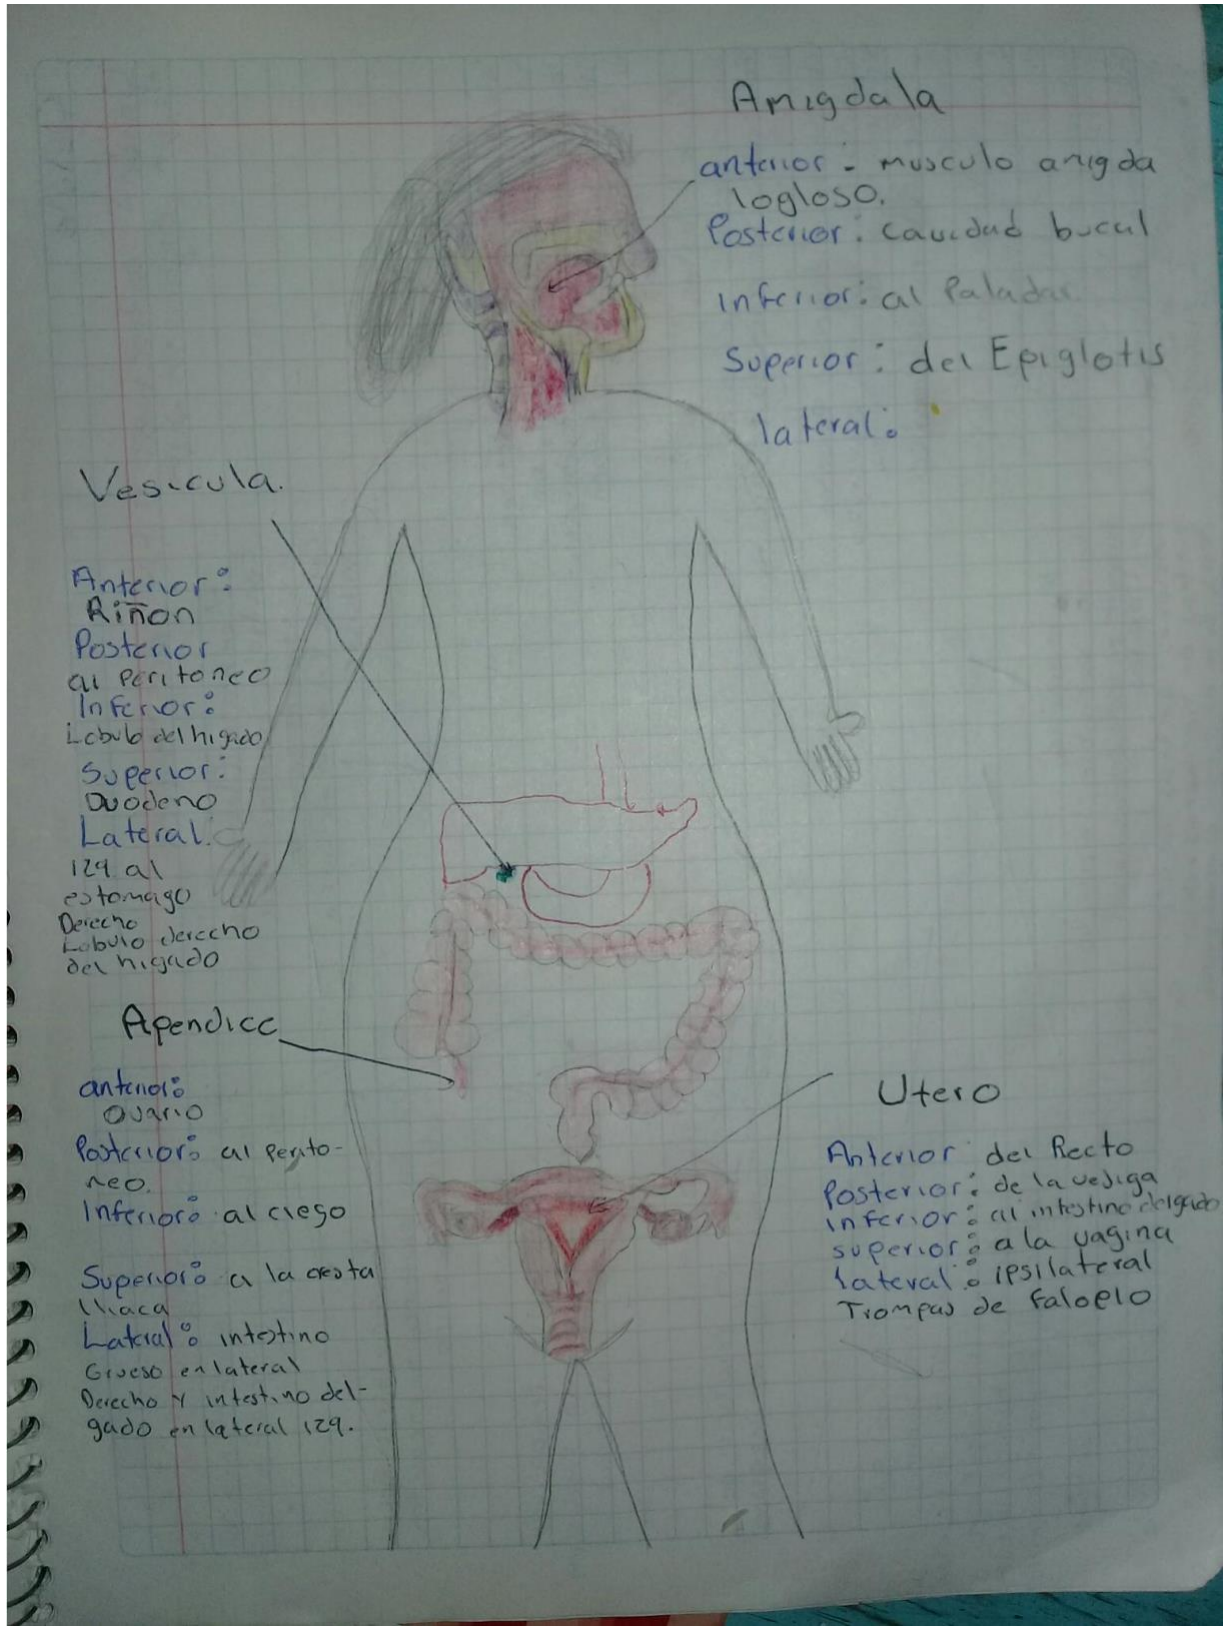 Amigdala
anterior - musculo amigda
logloso.
Posterior: cavidad bucal
inferior: al Paladar
Superior: del Epiglotis
lateral:
Vesicula.
Anterior:
Riñon
Posterior
al peritoneo
Inferior:
Lobulo del higado
Superior:
Duodeno
Lateral:
izq. al
estomago
Derecho
Lobulo derecho
del higado
Apendice
anterior:
Ovario
Posterior: al perito-
neo.
Inferior: al ciego
Superior: a la cresta
Iliaca
Lateral: intestino
Grueso en lateral
Derecho y intestino del-
gado en lateral izq.
Utero
Anterior del Recto
Posterior: de la vejiga
inferior: al intestino delgado
superior: a la vagina
lateral: ipsilateral
Trompas de Faloplo